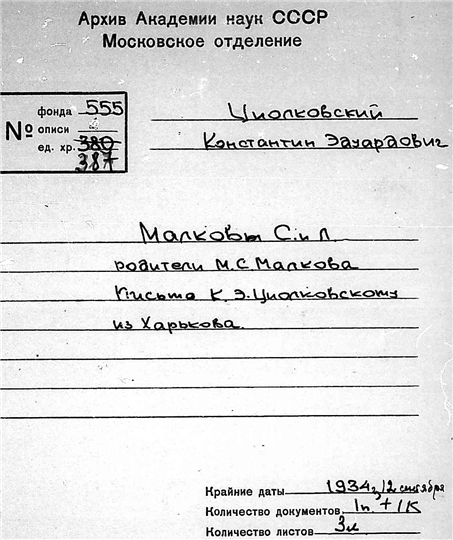 Архив Академии наук СССР
Московское отделение
№
фонда 555
описи
ед. хр. 380
387
Циолковский
Константин Эдуардович
Малковы С. и Л.
родители М.С. Малкова
Письма К.Э. Циолковскому
из Харькова.
Крайние даты 1934г, 12 сентября
Количество документов 1п. + 1к
Количество листов 3л